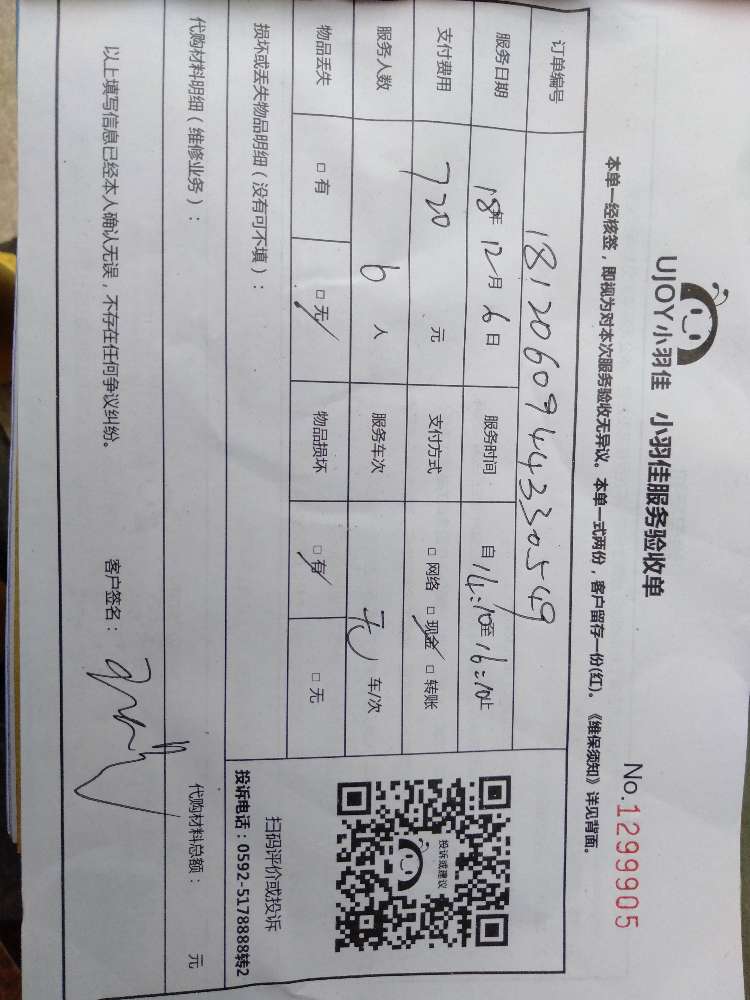 UJOY小羽佳 小羽佳服务验收单
No.1299905
本单一经核签,即视为对本次服务验收无异议。本单一式两份,客户留存一份(红)。《维保须知》详见背面。
订单编号 181206094433054​9
服务日期 18年12月6日 服务时间 自14:10至16:10止
支付费用 720 元 支付方式 □网络 □现金 □转账
服务人数 6 人 服务车次 无 车/次
物品丢失 □有 □无 物品损坏 □有 □无
投诉或建议
扫码评价或投诉
投诉电话:0592-5178888转2
损坏或丢失物品明细(没有可不填):
代购材料明细(维修业务): 代购材料总额: 元
以上填写信息已经本人确认无误,不存在任何争议纠纷。 客户签名: